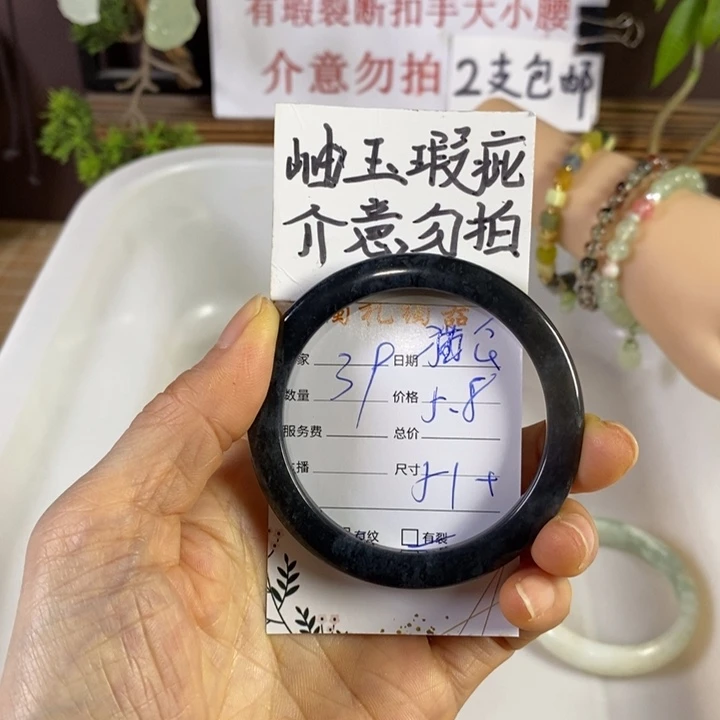 有瑕裂断扣手大小腰
介意勿拍 2支包邮
岫玉瑕疵
介意勿拍
家 39 日期
数量 价格 5.8
服务费 总价
播 尺寸 51+
有纹 有裂